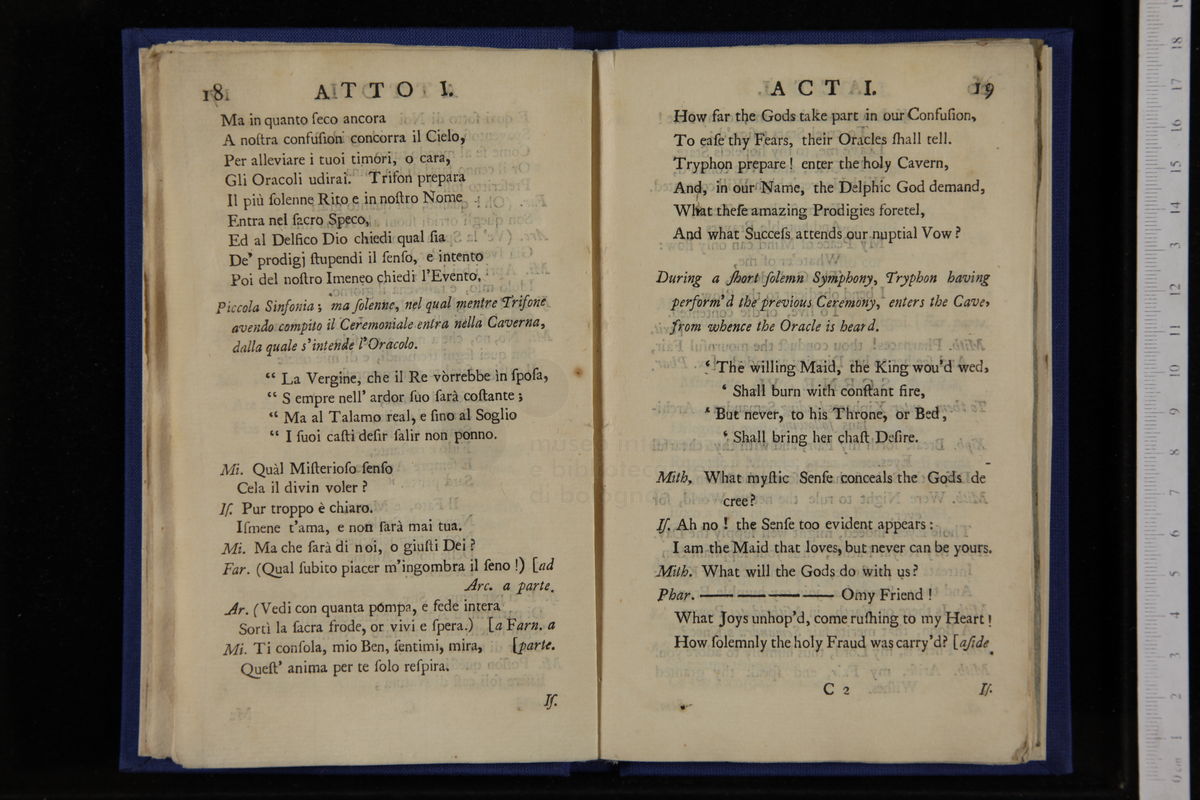 18
ATTO I.
Ma in quanto ſeco ancora
A noſtra confuſion concorra il Cielo,
Per alleviare i tuoi timori, o cara,
Gli Oracoli udirai. Trifon prepara
Il più ſolenne Rito e in noſtro Nome
Entra nel ſacro Speco,
Ed al Delfico Dio chiedi qual ſia
De' prodigj ſtupendi il ſenſo, e intento
Poi del noſtro Imeneo chiedi l'Evento,
Piccola Sinfonia; ma ſolenne, nel qual mentre Trifone
avendo compito il Ceremoniale entra nella Caverna,
dalla quale s'intende l'Oracolo.
“ La Vergine, che il Re vòrrebbe in ſpoſa,
“ S empre nell' ardor ſuo farà coſtante;
“ Ma al Talamo real, e fino al Soglio
“ I ſuoi caſti deſir ſalir non ponno.
Mi. Quàl Miſterioſo ſenſo
Cela il divin voler?
Iſ. Pur troppo è chiaro.
Iſmene t'ama, e non ſarà mai tua.
Mi. Ma che ſarà di noi, o giuſti Dei?
Far. (Qual ſubito piacer m'ingombra il ſeno!) [ad
Arc. a parte.
Ar. (Vedi con quanta pompa, e fede intera
Sortì la ſacra frode, or vivi e ſpera.) [a Farn. a
Mi. Ti conſola, mio Ben, ſentimi, mira, [parte.
Queſt' anima per te ſolo reſpira.
Iſ.
ACT I.
19
How far the Gods take part in our Confuſion,
To eaſe thy Fears, their Oracles ſhall tell.
Tryphon prepare! enter the holy Cavern,
And, in our Name, the Delphic God demand,
What theſe amazing Prodigies foretel,
And what Succeſs attends our nuptial Vow?
During a ſhort ſolemn Symphony, Tryphon having
perform'd the previous Ceremony, enters the Cave,
from whence the Oracle is heard.
‘ The willing Maid, the King wou'd wed,
‘ Shall burn with conſtant fire,
‘ But never, to his Throne, or Bed,
‘ Shall bring her chaſt Deſire.
Mith. What myſtic Senſe conceals the Gods de-
cree?
Iſ. Ah no! the Senſe too evident appears:
I am the Maid that loves, but never can be yours.
Mith. What will the Gods do with us?
Phar. ———————— O my Friend!
What Joys unhop'd, come ruſhing to my Heart!
How ſolemnly the holy Fraud was carry'd? [aſide.
C 2
Iſ.